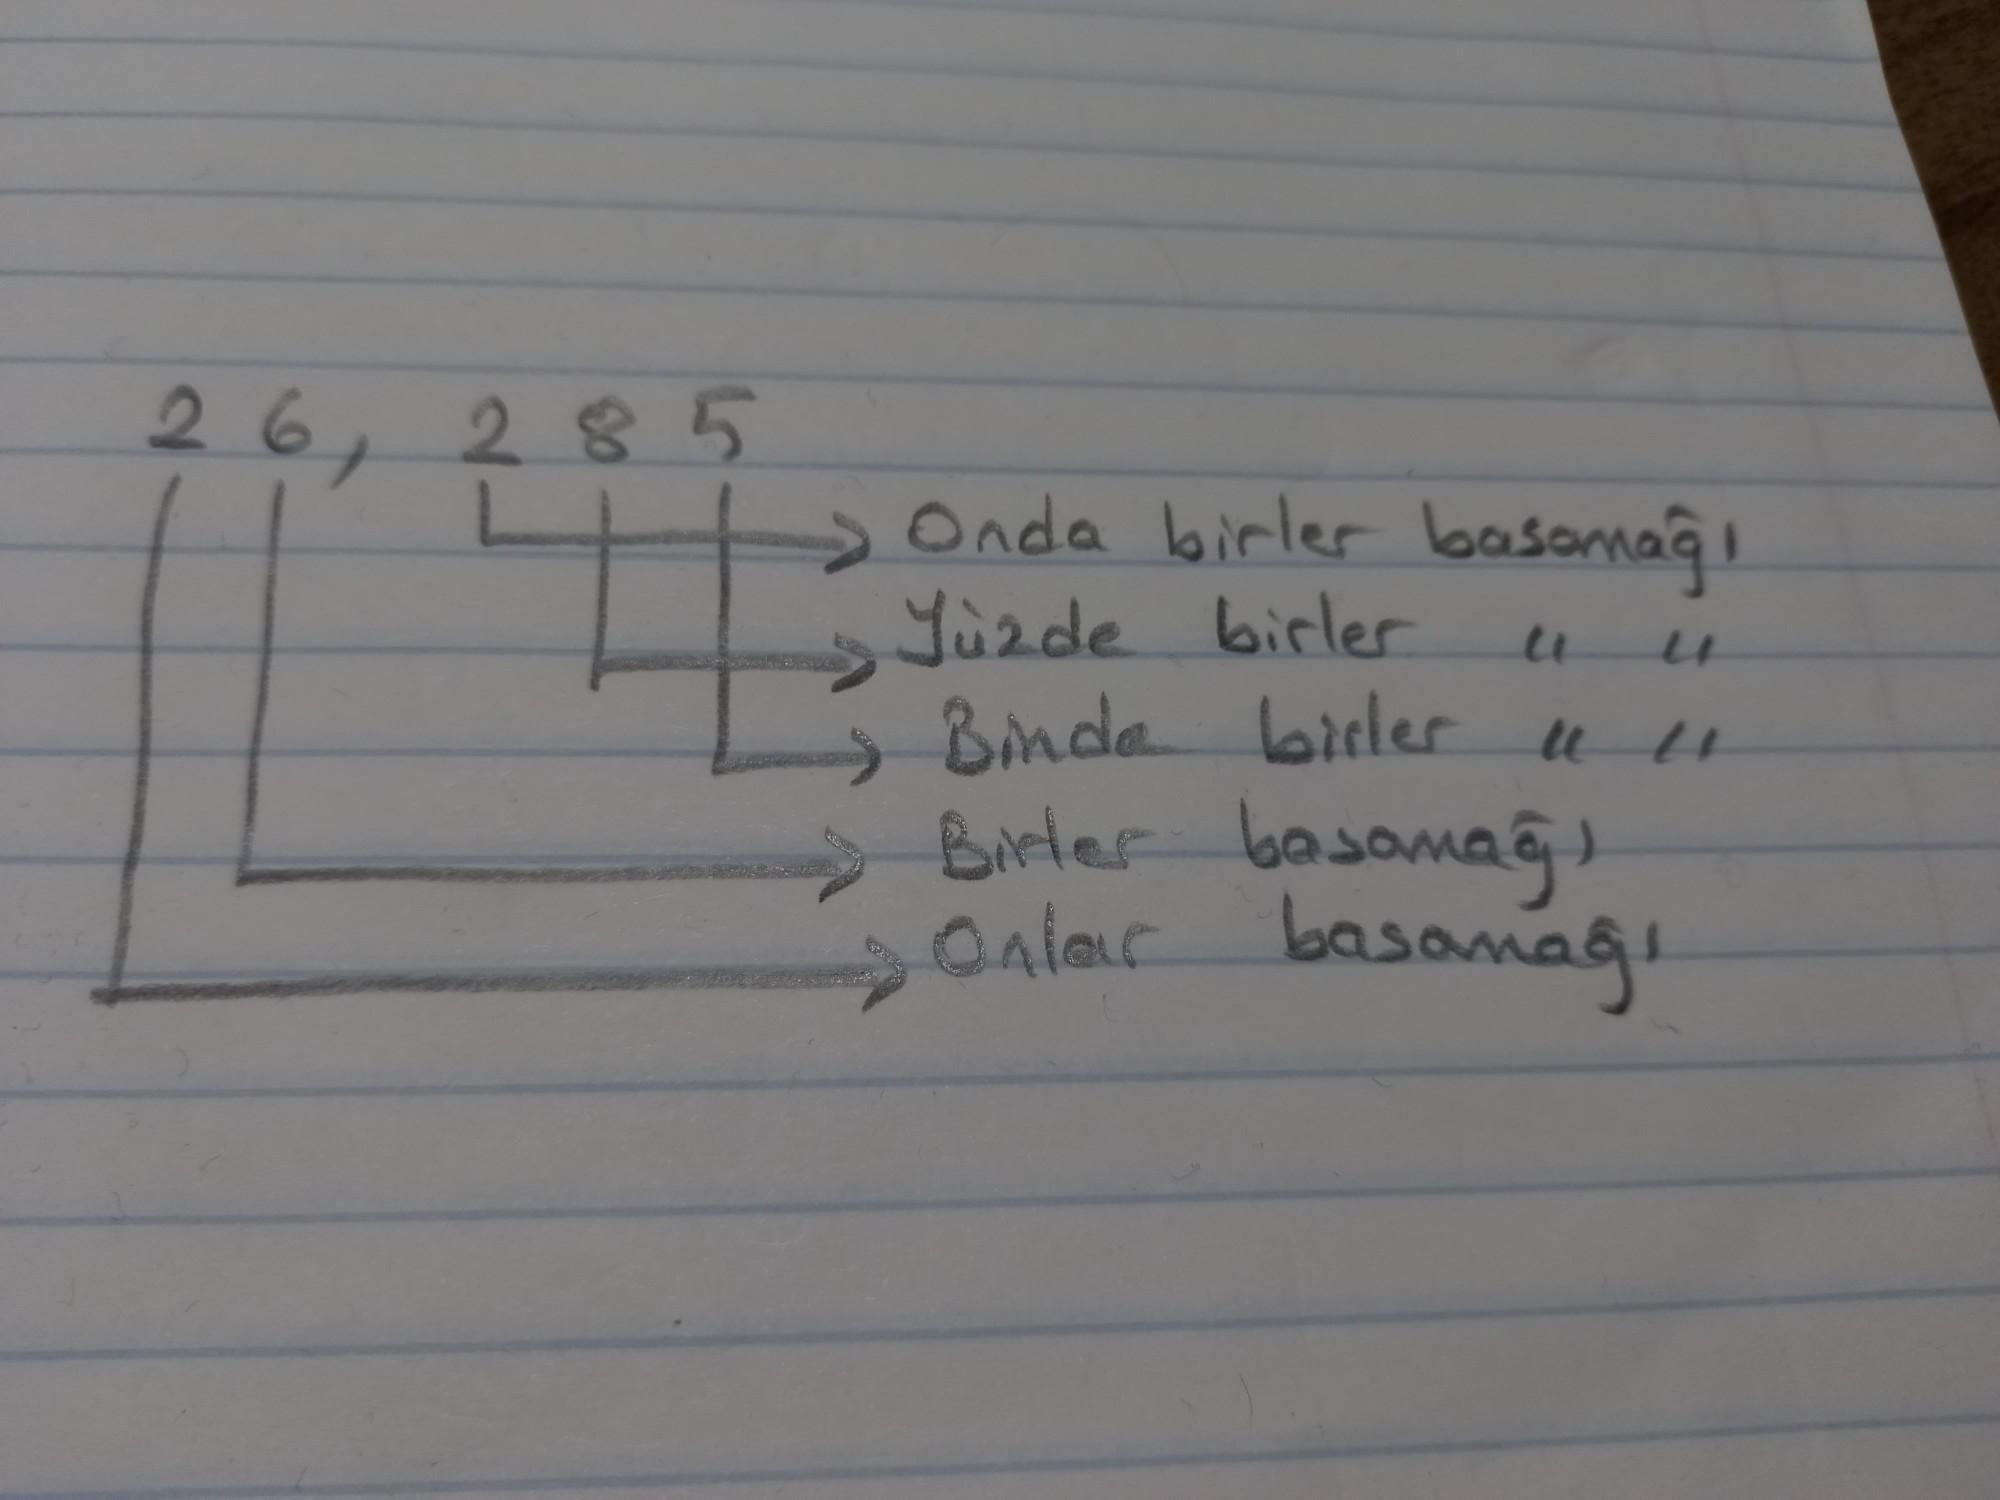 26,285
Onda birler basamağı
Yüzde birler " "
Binde birler " "
Birler basamağı
Onlar basamağı